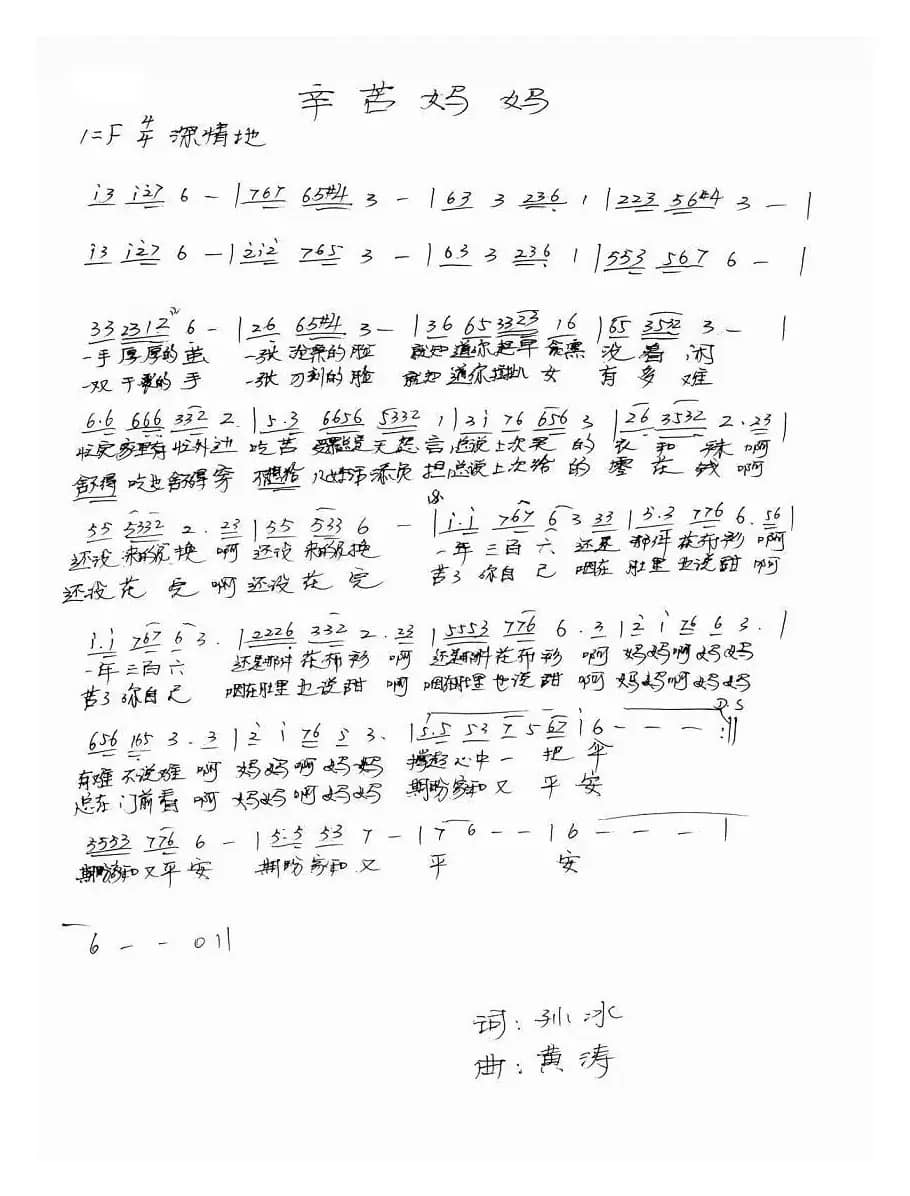 辛苦妈妈
1=F 4/4 深情地
i3 i27 6 - | 767 65#4 3 - | 63 3 236 1 | 223 56#4 3 - |
i3 i27 6 - | 2i2 765 3 - | 63 3 236 1 | 553 567 6 - |
33 2312 6 - | 26 65#4 3 - | 36 65 3323 16 | 65 3532 3 - |
一手厚厚的茧 一张沧桑的脸 就知道你起早贪黑没着闲
一双干裂的手 一张刀刻的脸 就知道你拉扯儿女有多难
6.6 666 332 2. | 5.3 6656 5332 1 | 3i 76 656 3 | 26 3532 2.23 |
忙完家里有忙外边 吃苦受累总是无怨言 总说上次买的衣和袜啊
舍不得吃也舍不得穿 不想给儿女添负担 总说上次给的零花钱啊
55 5332 2.23 | 55 533 6 - | i.i 767 6 3 33 | 5.3 776 6.56 |
还没来的及换啊 还没来的及换 一年三百六 还是那件花布衫啊
还没花完啊 还没花完 苦了你自己 咽在肚里也说甜啊
i.i 767 6 3. | 2226 332 2.23 | 5553 776 6.3 | 2 i 76 6 3. |
一年三百六 还是那件花布衫啊 还是那件花布衫啊 妈妈啊妈妈
苦了你自己 咽在肚里也说甜啊 咽在肚里也说甜啊 妈妈啊妈妈
D.S
656 165 3.3 | 2 i 76 5 3. | 5.5 53 7 5 67 | 6 - - - :||
有难不说难啊 妈妈啊妈妈 撑起心中一把伞
总在门前看啊 妈妈啊妈妈 期盼家和又平安
3553 776 6 - | 5.5 53 7 - | 7 6 - - | 6 - - - |
期盼家和又平安 期盼家和又平安
6 - - 0 ||
词：孙冰
曲：黄涛